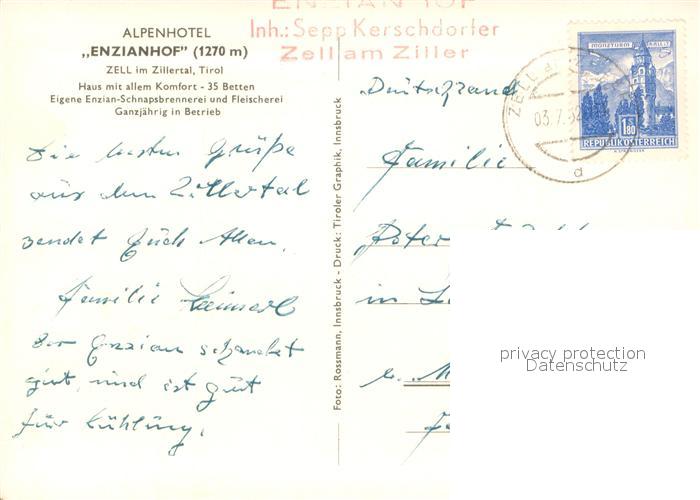 ALPENHOTEL
„ENZIANHOF" (1270 m)
ZELL im Zillertal, Tirol
Haus mit allem Komfort - 35 Betten
Eigene Enzian-Schnapsbrennerei und Fleischerei
Ganzjährig in Betrieb
ENZIANHOF
Inh.: Sepp Kerschdorfer
Zell am Ziller
MÜNZTURM HALL i/T
1.80
REPUBLIK ÖSTERREICH
ZELL a
03.7.62
a
Die besten Grüße
aus dem Zillertal
sendet Euch Allen,
Familie
Der Enzian schmeckt
gut, und ist gut
für Kühlung.
Foto: Rossmann, Innsbruck - Druck: Tiroler Graphik, Innsbruck
Deutschland
Familie
Peter
in
b. M
privacy protection
Datenschutz